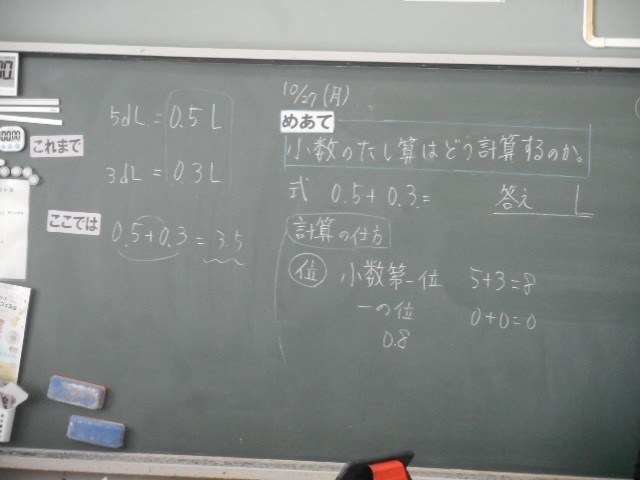 これまで
5dL = 0.5L
3dL = 0.3L
ここでは
0.5+0.3 = 3.5
10/27 (月)
めあて
小数のたし算はどう計算するのか。
式 0.5+0.3=
答え L
計算の仕方
位 小数第一位 5+3=8
一の位 0+0=0
0.8